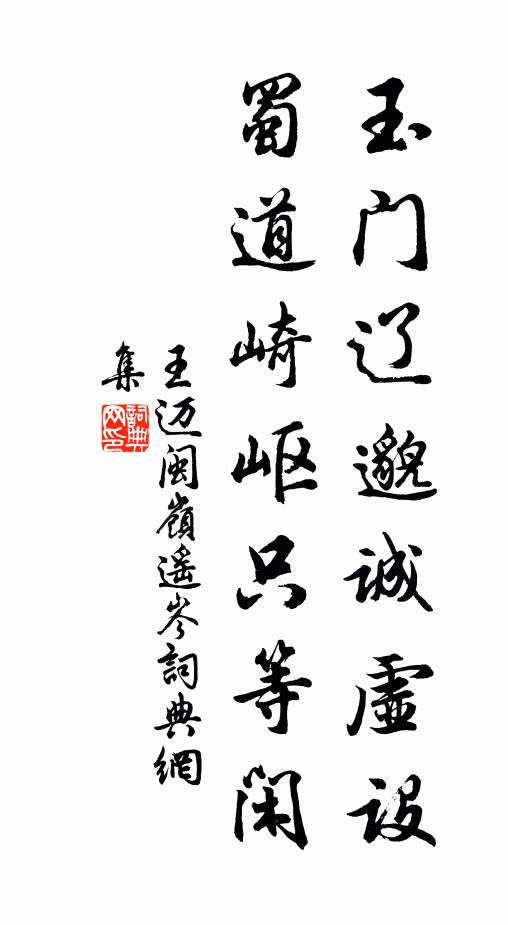 玉门辽邈诚虚设
蜀道崎岖只等闲
王迈闽嶺遥岑詞典網
集
詞典网印